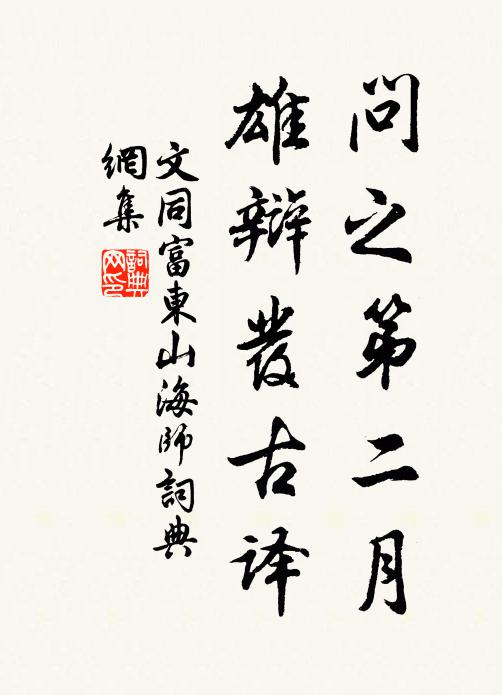 問之第二月
雄辯發古译
文同富東山海師詞典
網集
詞典网印